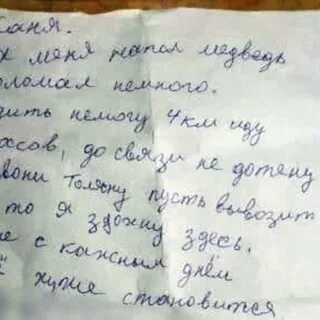 саня.
меня напол медведь
оломал немного.
дить немогу 4 км иду
асов, до связи не дотену
вони Толяну пусть вывозит
то я здохну здесь.
е с кажным днём
хуже становится